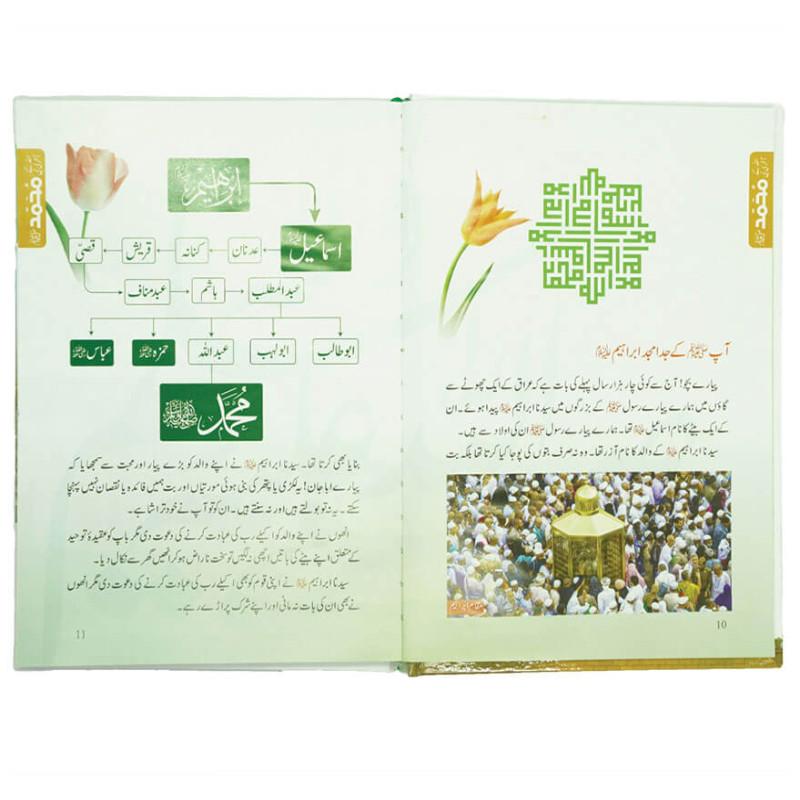 محمد
آپ ﷺ کے جد امجد ابراہیم علیہ السلام
پیارے بچو! آج سے کوئی چار ہزار سال پہلے کی بات ہے کہ عراق کے ایک چھوٹے سے
گاؤں میں ہمارے پیارے رسول ﷺ کے بزرگوں میں سیدنا ابراہیم علیہ السلام پیدا ہوئے۔ ان
کے ایک بیٹے کا نام اسماعیل علیہ السلام تھا۔ ہمارے پیارے رسول ﷺ ان کی اولاد سے ہیں۔
سیدنا ابراہیم علیہ السلام کے والد کا نام آزر تھا۔ وہ نہ صرف بتوں کی پوجا کیا کرتا تھا بلکہ بت
مقام ابراہیم
10
محمد
ابراہیم
اسماعیل علیہ السلام
عدنان
کنانہ
قریش
قصیّ
عبد مناف
ہاشم
عبدالمطلب
ابوطالب
ابولہب
عبداللہ
حمزہ
عباس
محمد صلی اللہ علیہ وسلم
بنایا بھی کرتا تھا۔ سیدنا ابراہیم علیہ السلام نے اپنے والد کو بڑے پیار اور محبت سے سمجھایا کہ
پیارے ابا جان! یہ لکڑی یا پتھر کی بنی ہوئی مورتیاں اور بت ہمیں فائدہ یا نقصان نہیں پہنچا
سکتے۔ یہ نہ تو بولتے ہیں اور نہ سنتے ہیں۔ ان کو تو آپ نے خود تراشا ہے۔
انھوں نے والد کو اکیلے رب کی عبادت کرنے کی دعوت دی مگر باپ کو عقیدۂ توحید
کے متعلق اپنے بیٹے کی باتیں اچھی نہ لگیں تو سخت ناراض ہو کر انھیں گھر سے نکال دیا۔
سیدنا ابراہیم علیہ السلام نے اپنی قوم کو بھی اکیلے رب کی عبادت کرنے کی دعوت دی مگر انھوں
نے بھی ان کی بات نہ مانی اور اپنے شرک پر اڑے رہے۔
11